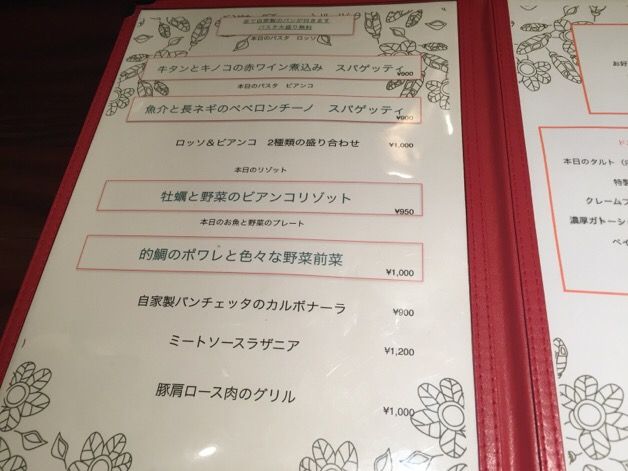 全て自家製のパンが付きます
パスタ大盛り無料
本日のパスタ ロッソ
牛タンとキノコの赤ワイン煮込み スパゲッティ
¥900
本日のパスタ ビアンコ
魚介と長ネギのペペロンチーノ スパゲッティ
¥900
ロッソ＆ビアンコ 2種類の盛り合わせ ¥1,000
本日のリゾット
牡蠣と野菜のビアンコリゾット
¥950
本日のお魚と野菜のプレート
的鯛のポワレと色々な野菜前菜
¥1,000
自家製パンチェッタのカルボナーラ ¥900
ミートソースラザニア ¥1,200
豚肩ロース肉のグリル ¥1,000
お好
本日のタルト
特製
クレームブ
濃厚ガトーシ
ベイ